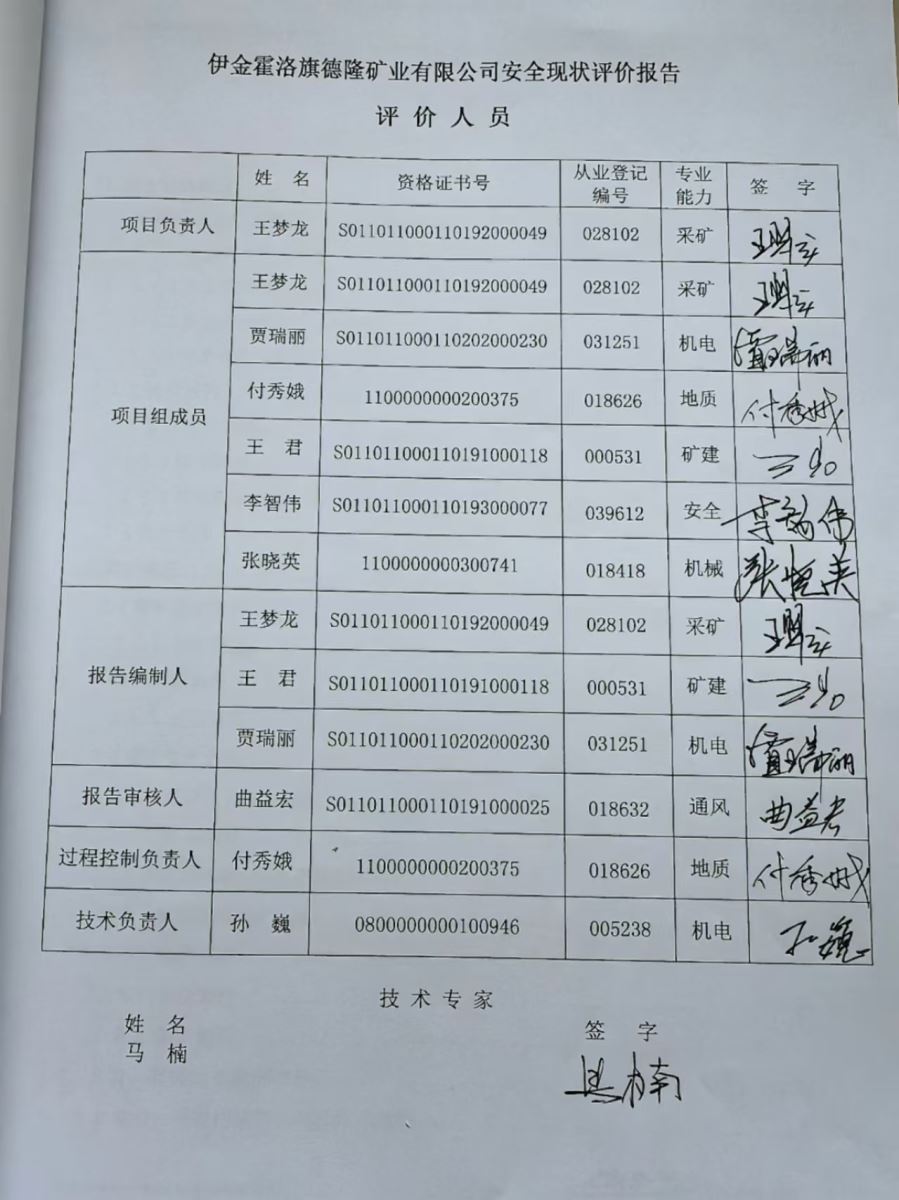 伊金霍洛旗德隆矿业有限公司安全现状评价报告
评 价 人 员
姓 名 资格证书号 从业登记编号 专业能力 签 字
项目负责人 王梦龙 S011011000110192000049 028102 采矿 王梦龙
项目组成员 王梦龙 S011011000110192000049 028102 采矿 王梦龙
贾瑞丽 S011011000110202000230 031251 机电 贾瑞丽
付秀娥 1100000000200375 018626 地质 付秀娥
王 君 S011011000110191000118 000531 矿建 王君
李智伟 S011011000110193000077 039612 安全 李智伟
张晓英 1100000000300741 018418 机械 张晓英
报告编制人 王梦龙 S011011000110192000049 028102 采矿 王梦龙
王 君 S011011000110191000118 000531 矿建 王君
贾瑞丽 S011011000110202000230 031251 机电 贾瑞丽
报告审核人 曲益宏 S011011000110191000025 018632 通风 曲益宏
过程控制负责人 付秀娥 1100000000200375 018626 地质 付秀娥
技术负责人 孙 巍 0800000000100946 005238 机电 孙巍
技 术 专 家
姓 名 签 字
马 楠 马楠